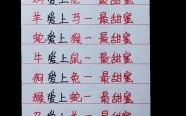 爱上 一最甜蜜
羊爱上马一最甜蜜
蛇爱上猴一最甜蜜
牛爱上鼠一最甜蜜
狗爱上兔一最甜蜜
猴爱上蛇一最甜蜜
爱上 一最甜蜜